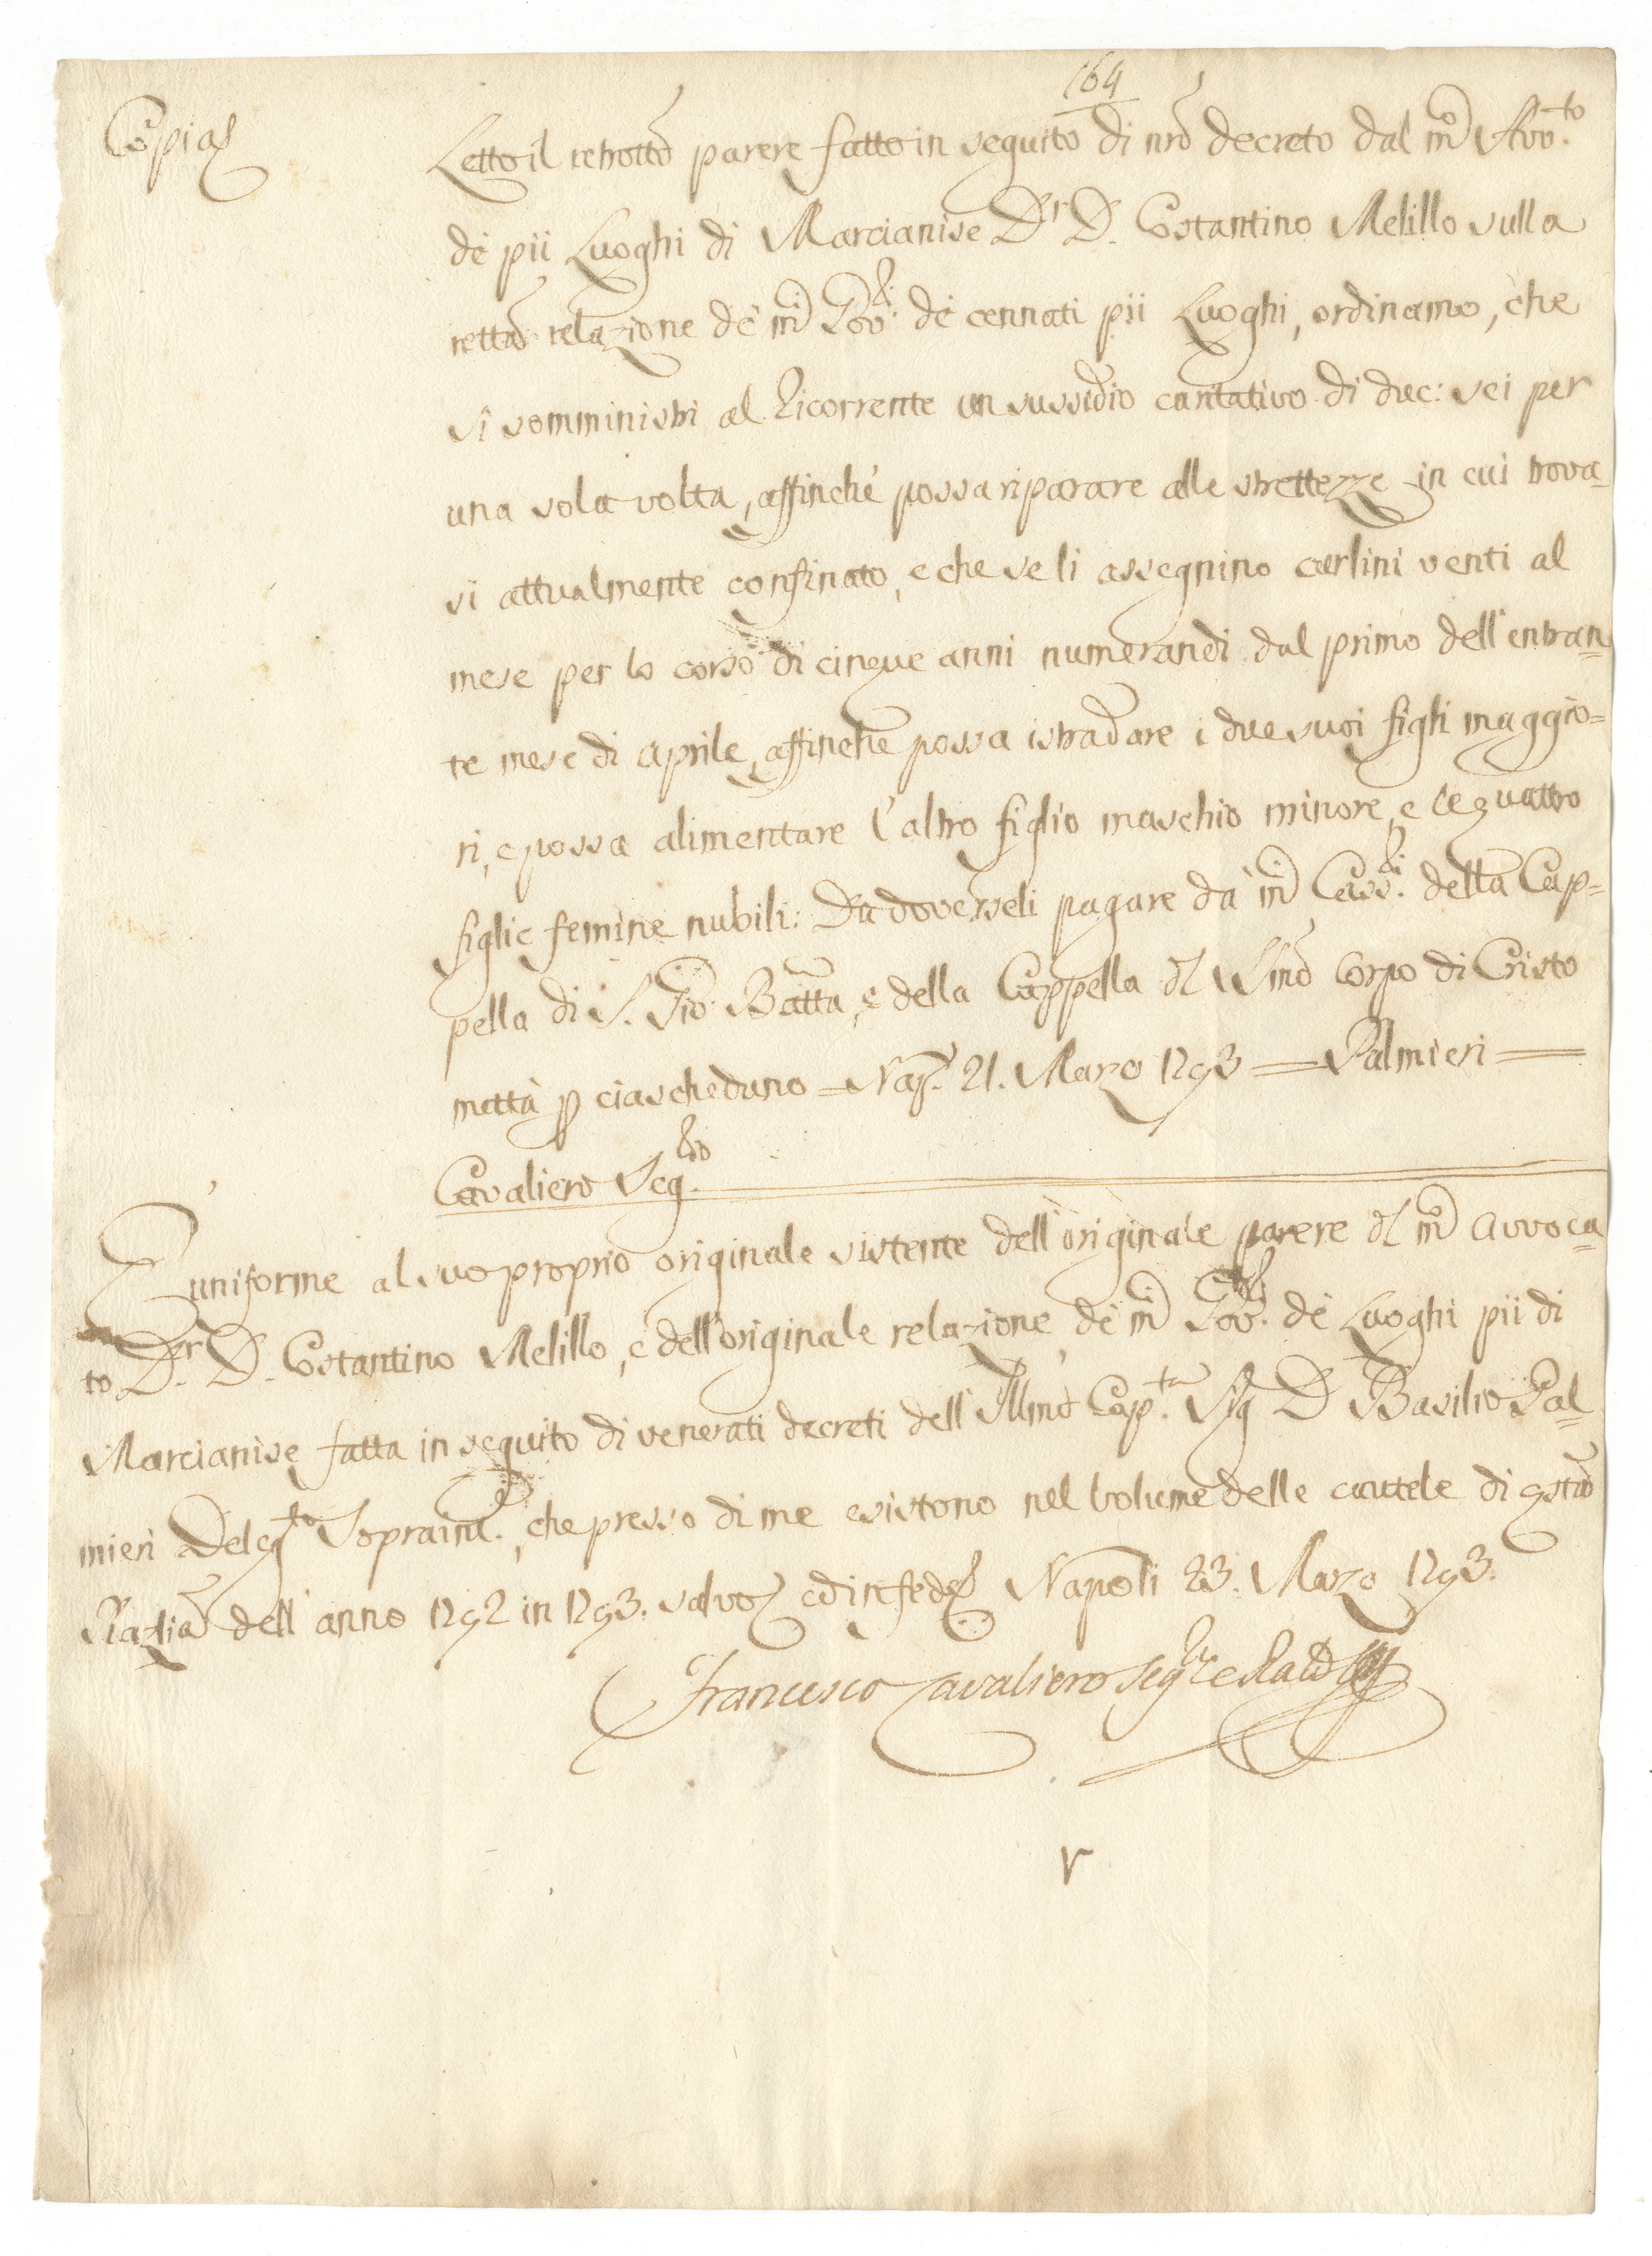 164
Copia
Letto il retrotto parere fatto in seguito di nrō decreto dal mco Avv.to
de' pii Luoghi di Marcianise Dr. D. Costantino Melillo sulla
retta relazione de' mci Gov.ri de' cennati pii Luoghi, ordinamo, che
si somministri al Ricorrente un sussidio caritativo di duc: sei per
una sola volta, affinchè possa riparare alle strettezze in cui trova=
si attualmente confinato, e che se li assegnino carlini venti al
mese per lo corso di cinque anni numerandi dal primo dell'entran=
te mese di Aprile, affinchè possa istradare i due suoi figli maggio=
ri, e possa alimentare l'altro figlio maschio minore, e le quattro
figlie femine nubili: Da doverseli pagare da' mci Cass.ri della Cap=
pella di S. Gio: Batta, e della Cappella del SSmo Corpo di Cristo
mettà p ciascheduno = Nap. 21. Marzo 1793 = Palmieri =
Cavaliero Seg.rio
È uniforme al suo proprio originale sistente dell'originale parere del mco Avvoca=
to Dr. D. Costantino Melillo, e dell'originale relazione de' mci Gov.ri de' Luoghi pii di
Marcianise fatta in seguito di venerati decreti dell'Illmo Cap. Sig D Basilio Pal=
mieri Deleg.to Sopraint., che presso di me esistono nel volume delle cautele di qsta
Razlia dell'anno 1792 in 1793. salvo, ed in fede Napoli 23. Marzo 1793.
Francesco Cavaliero Seg.rio e Razle